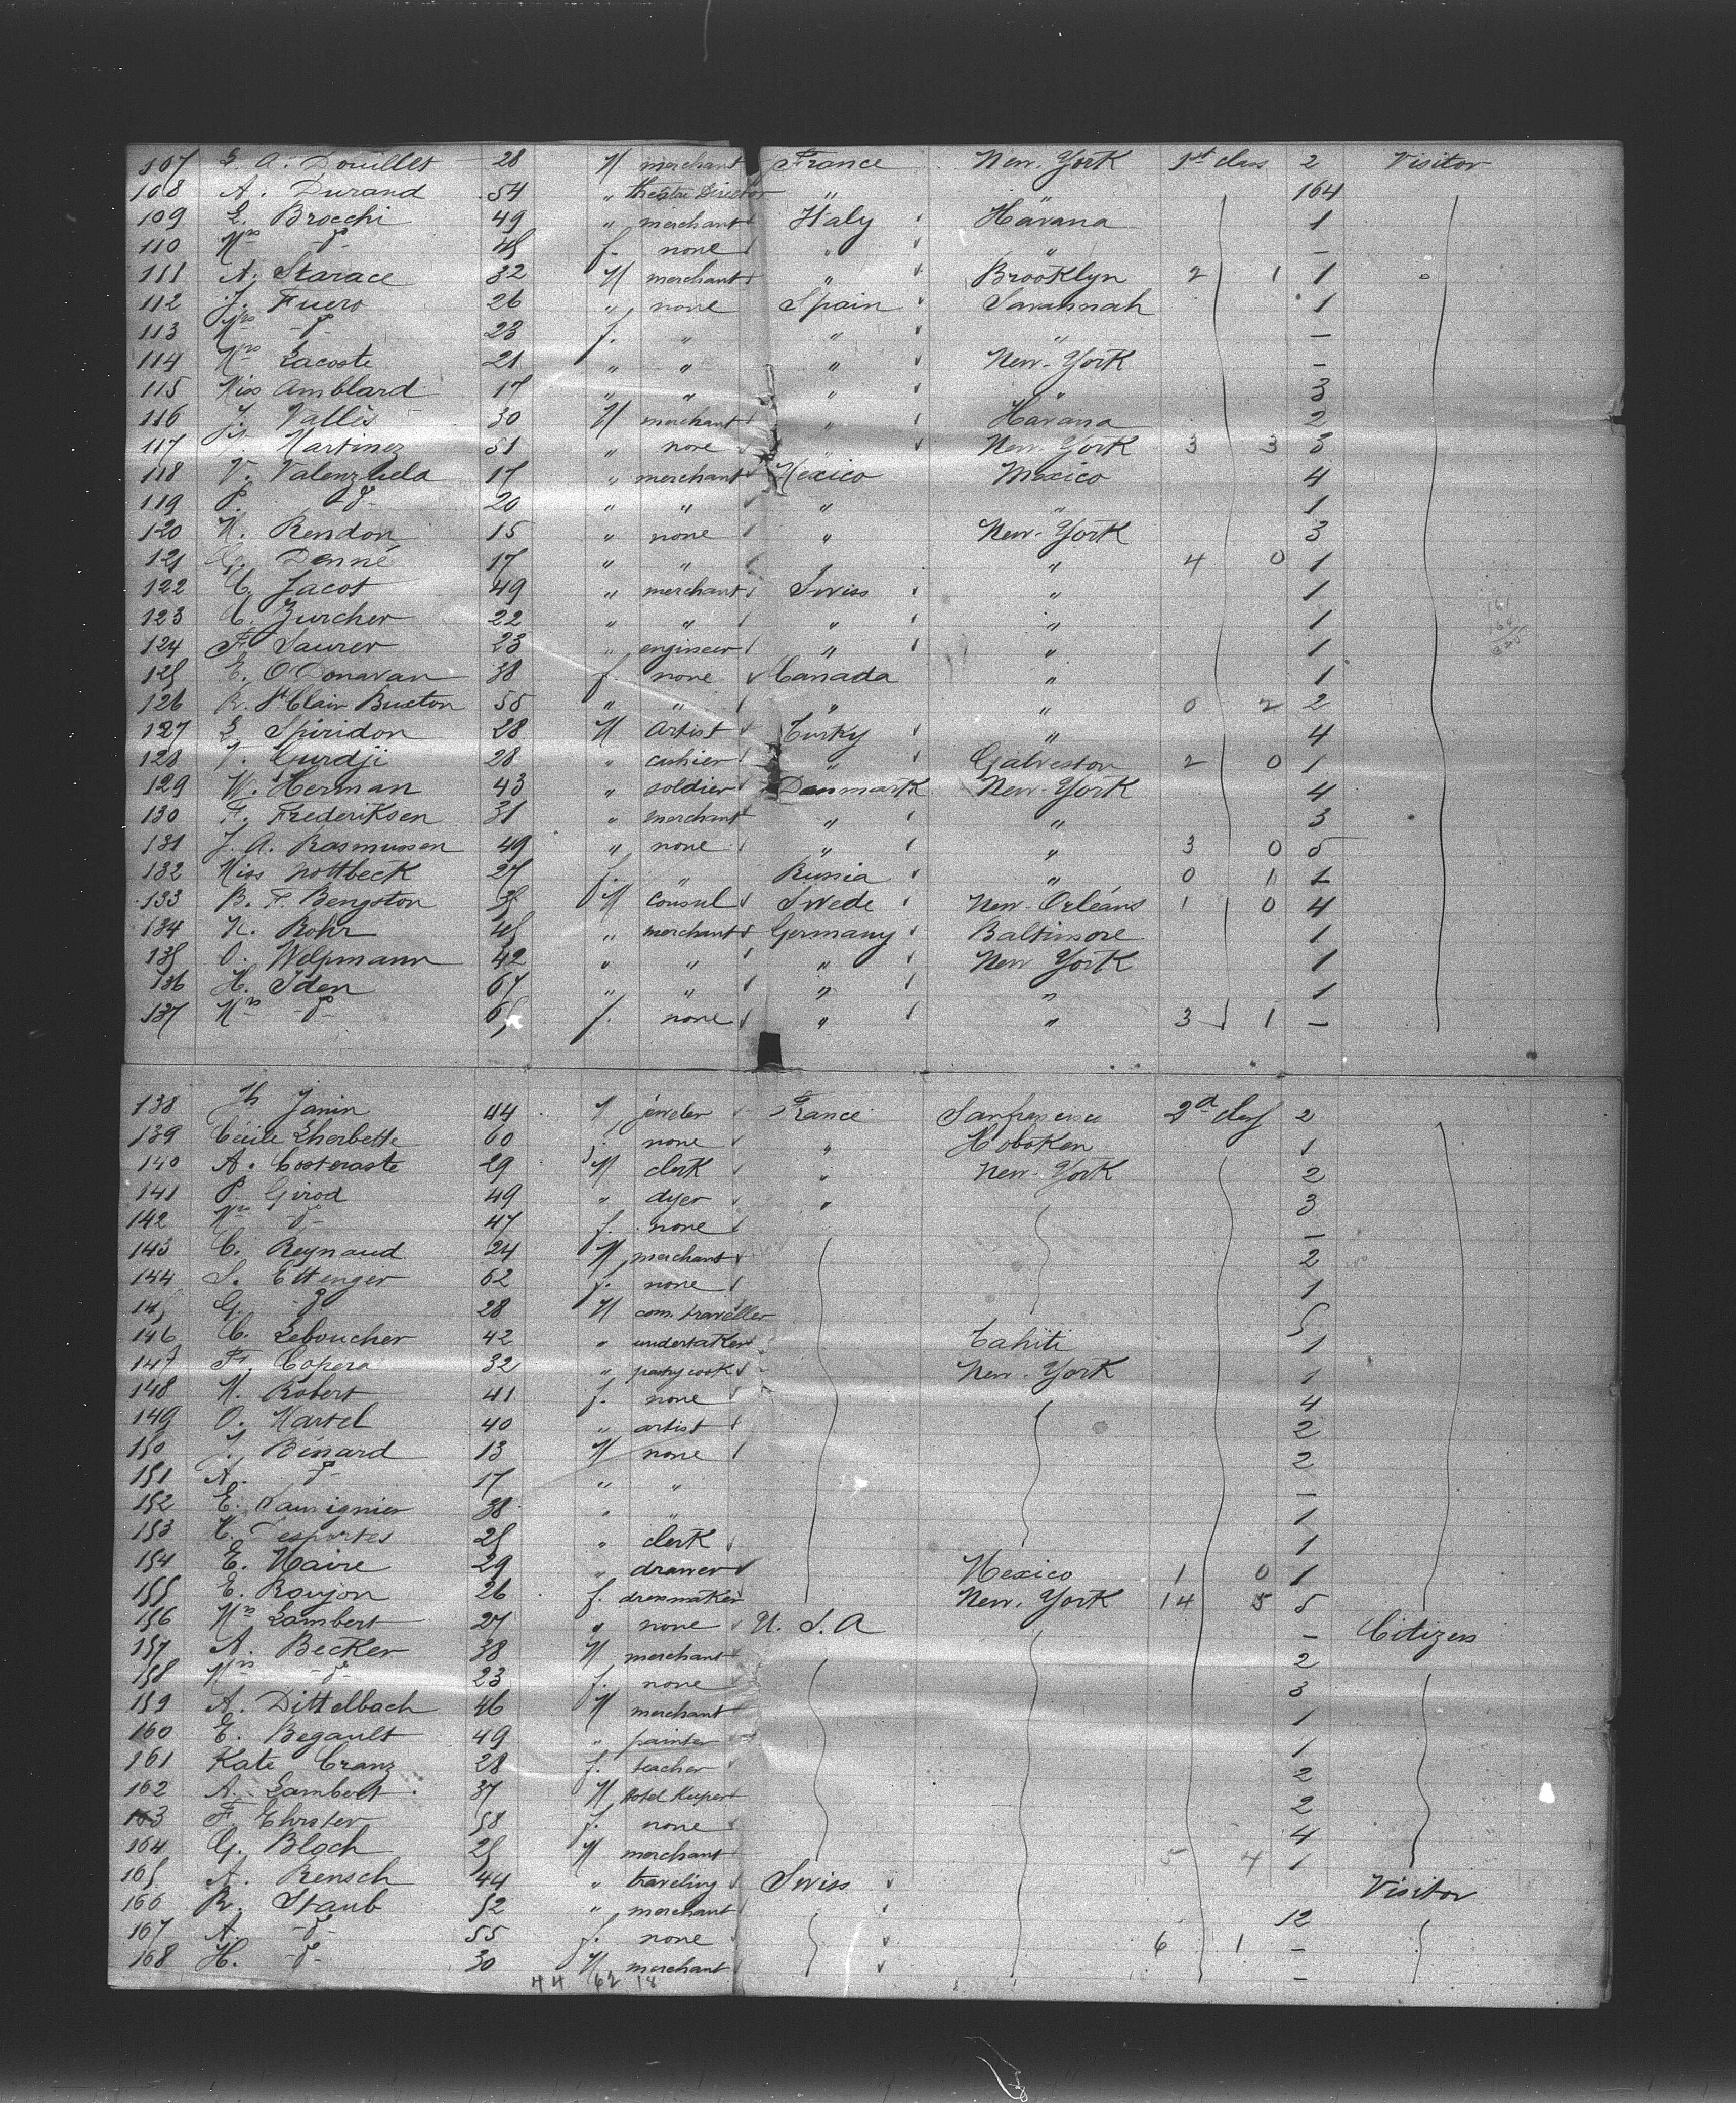 107 E. A. Douillet 28 M merchant France New-York 1st class 2 Visitor
108 A. Durand 54 " theatre Director " " 164
109 E. Brocchi 49 " merchant Italy Havana 1
110 Mrs -d°- 45 f. none " " -
111 A. Starace 32 M merchant " Brooklyn 2 1 1
112 J. Fuero 26 " none Spain Savannah 1
113 Mrs -d°- 23 f. " " " -
114 Mrs Lacoste 21 " " " New-York -
115 Miss Amblard 17 " " " " 3
116 J. Vallès 30 M merchant " Havana 2
117 Martinez 51 " none " New-York 3 3 5
118 V. Valenzuela 17 " merchant Mexico Mexico 4
119 P. -d°- 20 " " " " 1
120 M. Rendon 15 " none " New-York 3
121 G. Denné 17 " " " " 4 0 1
122 C. Jacot 49 " merchant Swiss " 1
123 C. Zurcher 22 " " " " 1
124 F. Saurer 23 " engineer " " 1
125 E. O'Donavan 38 f. none Canada " 1
126 R. St Clair Buxton 55 " " " " 0 2 2
127 E. Spiridon 28 M Artist Turky " 4
128 V. Gurdji 28 " cashier " Galveston 2 0 1
129 W. Herman 43 " soldier Danmark New-York 4
130 F. Frederiksen 31 " merchant " " 3
131 J. A. Rasmussen 49 " none " " 3 0 5
132 Miss Nottbeck 27 f. " Russia " 0 1 1
133 B. F. Bengston 35 M Consul Swede New-Orléans 1 0 4
134 N. Rohr 45 " merchant Germany Baltimore 1
135 O. Welpmann 42 " " " New York 1
136 H. Iden 67 " " " " 1
137 Mrs -d°- 65 f. none " " 3 1 -
138 Th Janin 44 M jeweler France Sanfrancisco 2d class 2
139 Cécile Lherbette 60 f. none " Hoboken 1
140 A. Costeraste 29 M clerk " New-York 2
141 P. Girod 49 " dyer " 3
142 Mrs -d°- 47 f. none -
143 C. Reynaud 24 M merchant 2
144 S. Ettenger 62 f. none 1
145 G. -d°- 28 M com. traveller 5
146 C. Leboucher 42 " undertaker Tahiti 1
147 F. Copera 32 " pastry cook New-York 1
148 M. Robert 41 f. none 4
149 O. Martel 40 " artist 2
150 J. Bénard 13 M none 2
151 A. -d°- 17 " " -
152 E. Sauvignier 38 " " 1
153 25 " clerk 1
154 E. Maire 29 " drawer Mexico 1 0 1
155 E. Roujon 26 f. dressmaker New-York 14 5 5
156 Mrs Lambert 27 " none U. S. A - Citizen
157 A. Becker 38 M merchant 2
158 Mrs -d°- 23 f. none 3
159 A. Dittelbach 46 M merchant 1
160 E. Begault 49 " painter 1
161 Kate Cranz 28 f. teacher 2
162 A. Lambert 37 M Hotel Keeper 2
163 F. Christer 58 f. none 4
164 G. Bloch 25 M merchant 5 4 1
165 A. Rensch 44 " traveling Swiss Visitor
166 R. Staub 52 " merchant 12
167 A. -d°- 55 f. none 6 1 -
168 H. -d°- 30 M merchant -
44 62 18